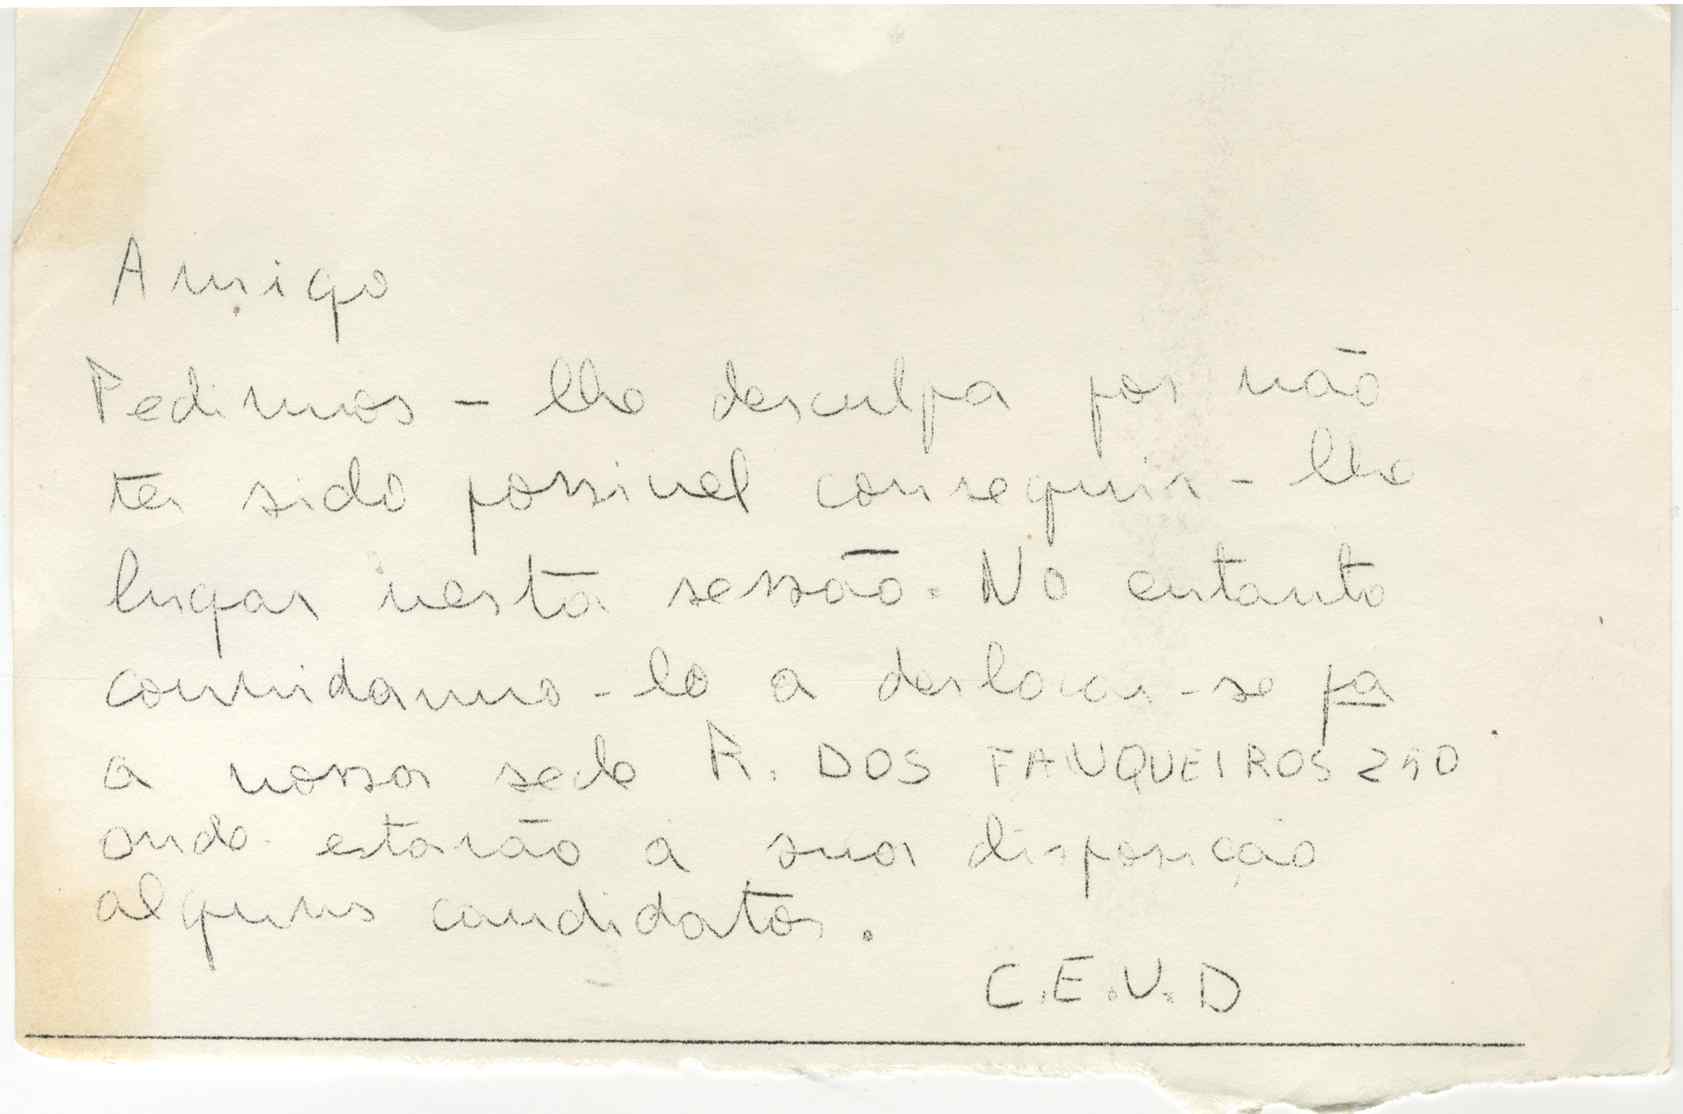 Amigo
Pedimos-lhe desculpa por não
ter sido possivel conseguir-lhe
lugar nesta sessão. No entanto
convidamo-lo a deslocar-se pa
a nossa sede R. DOS FANQUEIROS
onde estarão a sua disposição
alguns candidatos.
C.E.U.D